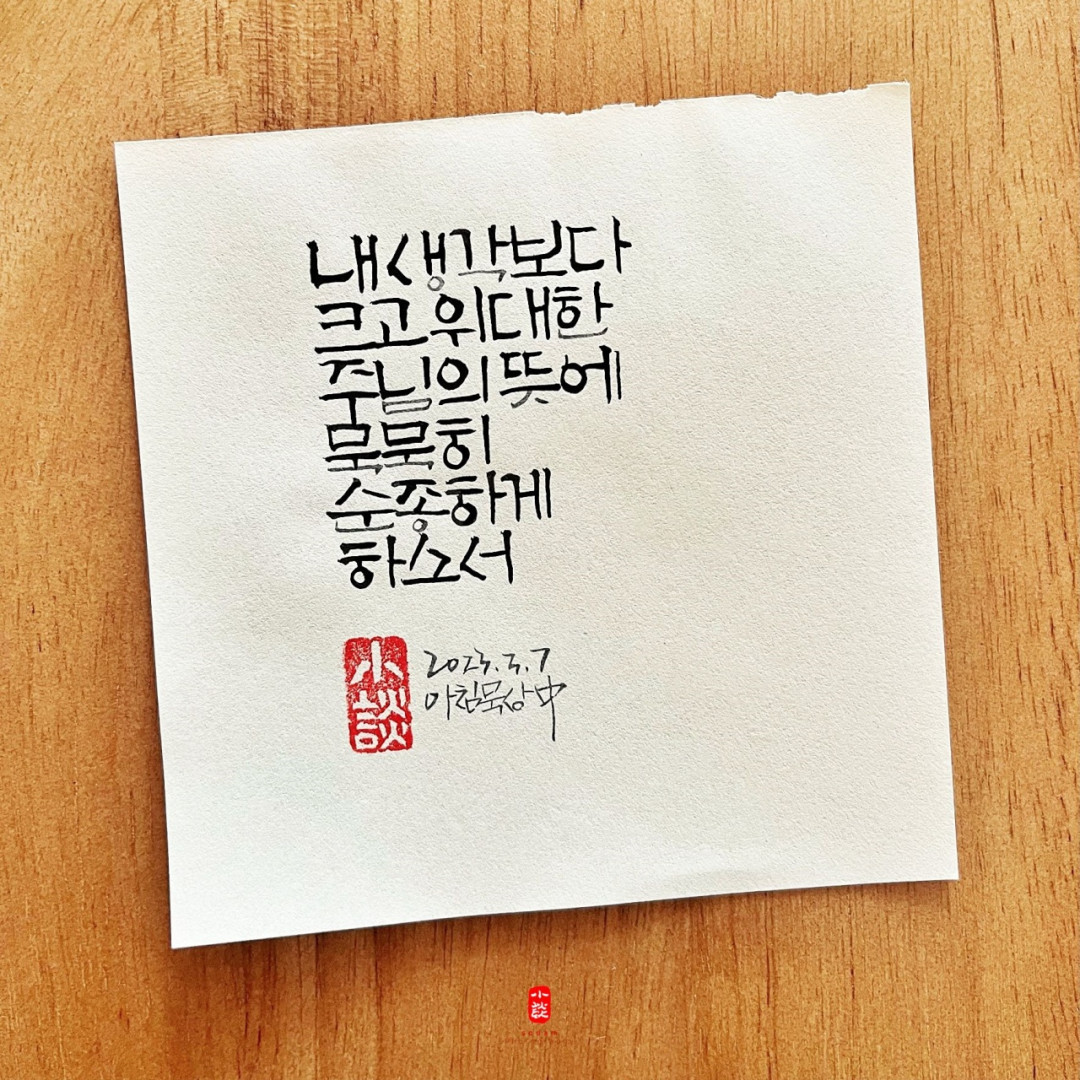 내 생각보다
크고 위대한
주님의 뜻에
묵묵히
순종하게
하소서
小談
2023.3.7
아침묵상 中
小談